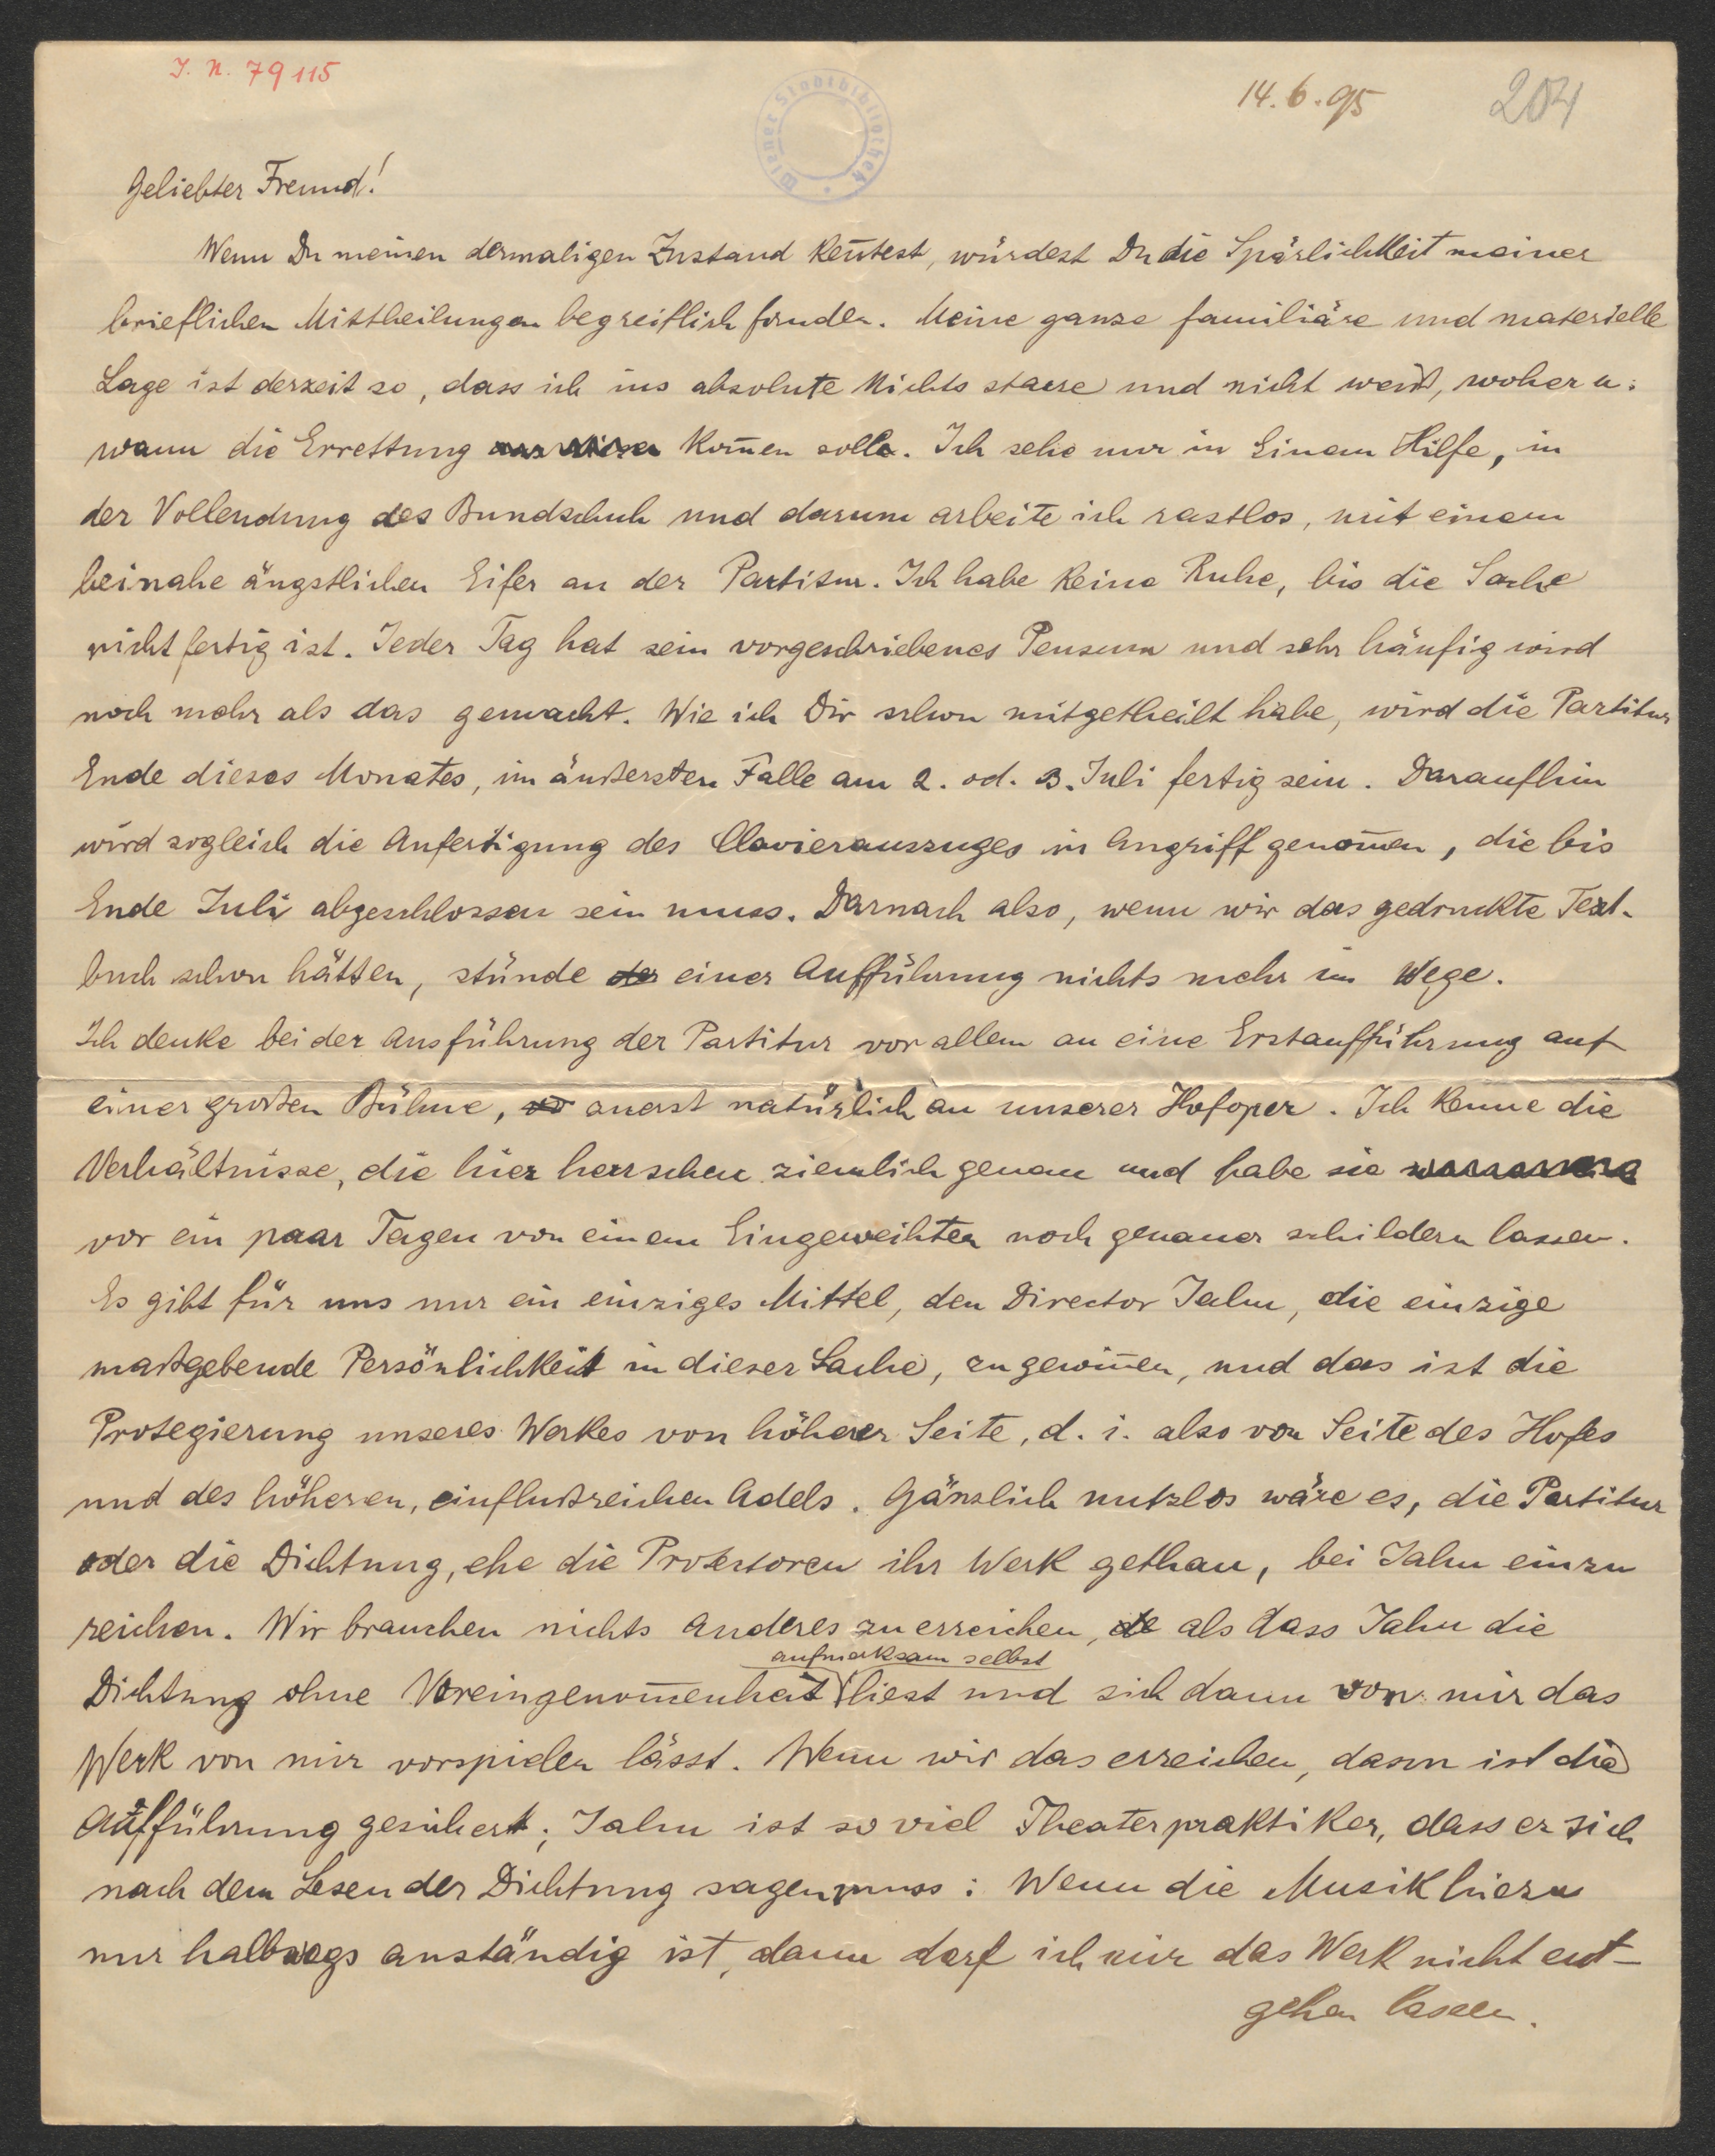 I. N. 79115
14. 6. 95
204
Wiener Stadtbibliothek
Geliebter Freund!
Wenn Du meinen dermaligen Zustand keñtest, würdest Du die Spärlichkeit meiner
brieflichen Mittheilungen begreiflich finden. Meine ganze familiäre und materielle
Lage ist derzeit so, dass ich ins absolute Nichts starre und nicht weiß, woher u.
wann die Errettung kom̄en solle. Ich sehe nur in Einem Hilfe, in
der Vollendung des Bundschuh und darum arbeite ich rastlos, mit einem
beinahe ängstlichen Eifer an der Partitur. Ich habe keine Ruhe, bis die Sache
nicht fertig ist. Jeder Tag hat sein vorgeschriebenes Pensum und sehr häufig wird
noch mehr als das gemacht. Wie ich Dir schon mitgetheilt habe, wird die Partitur
Ende dieses Monates, im äußersten Falle am 2. od. 3. Juli fertig sein. Daraufhin
wird sogleich die Anfertigung des Clavierauszuges in Angriff genom̄en, die bis
Ende Juli abgeschlossen sein muss. Darnach also, wenn wir das gedruckte Text-
buch schon hätten, stünde der einer Aufführung nichts mehr im Wege.
Ich denke bei der Ausführung der Partitur vor allem an eine Erstaufführung auf
einer großen Bühne, zuerst natürlich an unserer Hofoper. Ich kenne die
Verhältnisse, die hier herrschen ziemlich genau und habe sie
vor ein paar Tagen von einem Eingeweihten noch genauer schildern lassen.
Es gibt für uns nur ein einziges Mittel, den Director Jahn, die einzige
maßgebende Persönlichkeit in dieser Sache, zu gewin̄en, und das ist die
Protegierung unseres Werkes von höherer Seite, d. i. also von Seite des Hofes
und des höheren, einflußreichen Adels. Gänzlich nutzlos wäre es, die Partitur
oder die Dichtung, ehe die Protectoren ihr Werk gethan, bei Jahn einzu
reichen. Wir brauchen nichts Anderes zu erreichen, de als dass Jahn die
aufmerksam selbst
Dichtung ohne Voreingenom̄enheit liest und sich dann von mir das
Werk von mir vorspielen lässt. Wenn wir das erreichen, dann ist die
Aufführung gesichert; Jahn ist so viel Theaterpraktiker, dass er sich
nach dem Lesen der Dichtung sagen muss: Wenn die Musik hiezu
nur halbwegs anständig ist, dann darf ich mir das Werk nicht ent-
gehen lassen.